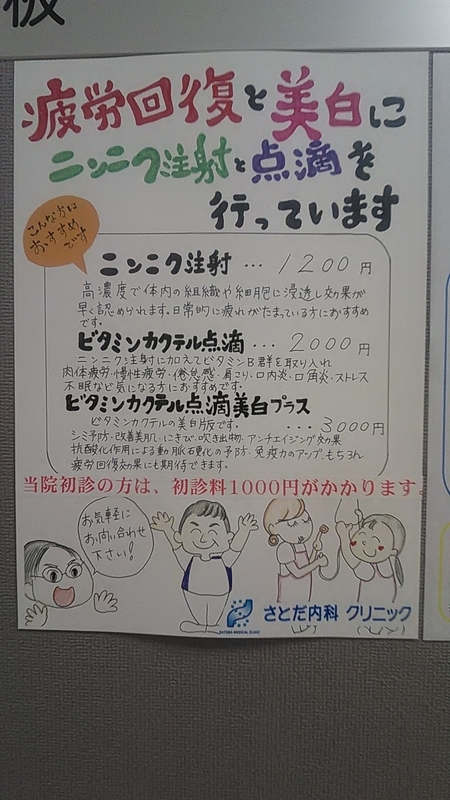 板
疲労回復と美白に
ニンニク注射と点滴を
行っています
こんな方に
おすすめ
です
ニンニク注射…1200円
高濃度で体内の組織や細胞に浸透し効果が
早く認められます。日常的に疲れがたまっている方におすすめ
です。
ビタミンカクテル点滴...2000円
ニンニク注射に加えてビタミンB群を取り入れ
肉体疲労・慢性疲労・倦怠感・肩こり・口内炎・口角炎・ストレス
不眠など気になる方におすすめです。
ビタミンカクテル点滴美白プラス
ビタミンカクテルの美白版です。...3000円
シミ予防・改善美肌・にきび・吹き出物・アンチエイジング効果
抗酸化作用による動脈硬化の予防・免疫力のアップ、もちろん
疲労回復効果にも期待できます。
当院初診の方は、初診料1000円がかかります。
お気軽に
お問い合わせ
下さい!
SATODA MEDICAL CLINIC
さとだ内科 クリニック